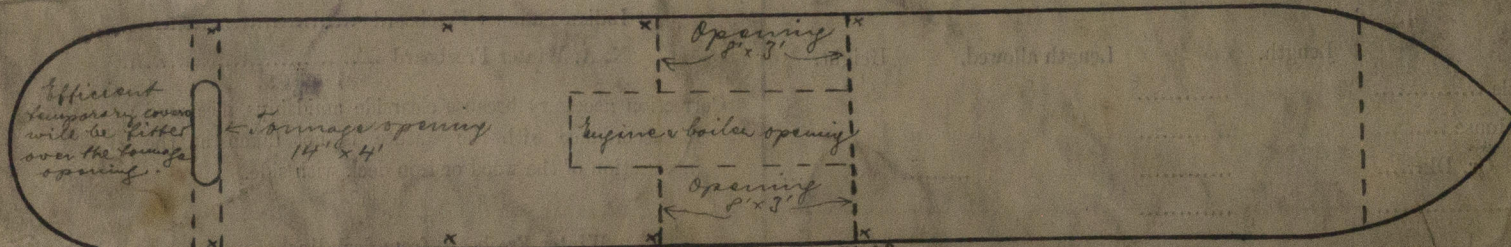 Efficient
temporary covers
will be fitted
over the tonnage
opening.
Tonnage opening
14' x 4'
Opening
8' x 3'
Engine & boiler opening
Opening
8' x 3'
Length.
Length allowed.